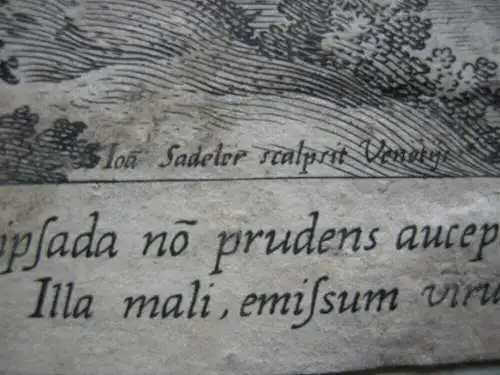 Ioā Sadeler scalpsit Venetijs
ipſada nō prudens aucep
Illa mali, emiſsum viru